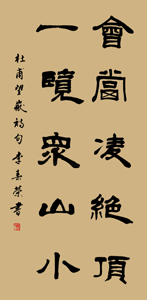 會當凌絕頂
一覽眾山小
杜甫望嶽詩句 李春榮書